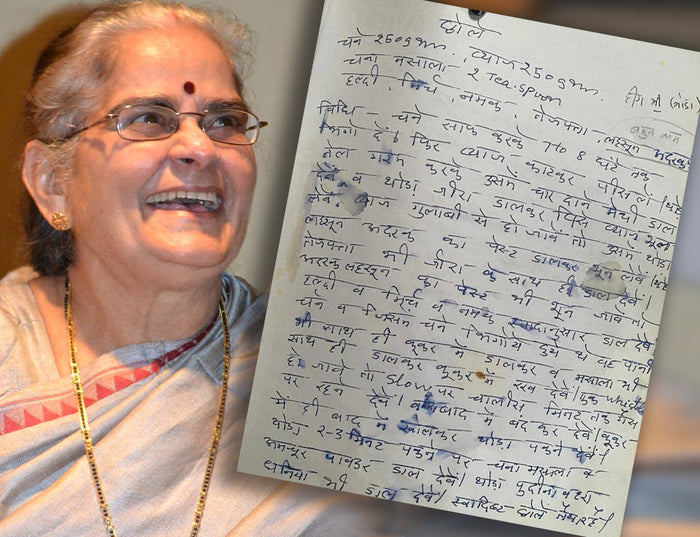 छोले
चने 250gm. प्याज 250gm.
चना मसाला- 2 Tea-Spoon
हल्दी, मिर्च, नमक, तेजपत्ता, लहसून अदरक
हींग भी (थोडा)
बहुत कम
विधि- चने साफ करके 7 to 8 घंटे तक
भिगो दें। फिर प्याज काटकर पीसलें।
तेल गरम करके उसमें चार दाने मेथी डाल
देवें व थोडा जीरा डालकर पिसे प्याज
लेवें। प्याज गुलाबी से हो जावे तो उसमें थोडा
लहसून अदरक का पेस्ट डालकर भून लेवें।
तेजपत्ता भी जीरा के साथ ही डाल देवें।
अदरक लहसून का पेस्ट भी भून जावें तो
हल्दी व मिर्च व नमक स्वादानुसार डाल देवें
चने व जिसमें चने भिगोये हुये थे वह पानी
भी साथ ही कूकर में डालकर व मसाला भी
साथ ही डालकर कूकर में रख देवें। एक
हो जावे तो Slow पर चालीस मिनट तक गैस
पर रहने देवें। बाद में बंद कर देवें। कूकर
में ही बाद में खोलकर थोडा पकने देवें।
थोडा 2-3 मिनट पकने पर चना मसाला व
अमचूर पावडर डाल देवें। थोडा पुदीना व हरा
धनिया भी डाल देवें। स्वादिष्ट छोले तैयार हैं।